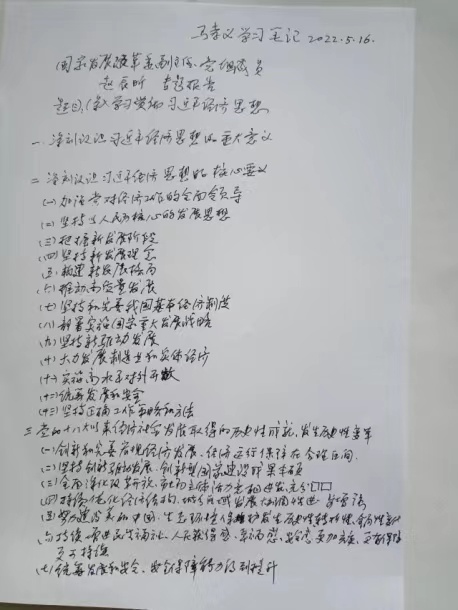 马孝义学习笔记 2022.5.16.
国家发展改革委副主任、党组成员
赵辰昕 专题报告
题目《学习贯彻习近平经济思想》
一、深刻认识习近平经济思想的重大意义
二、深刻认识习近平经济思想的核心要义
(一)加强党对经济工作的全面领导
(二)坚持以人民为核心的发展思想
(三)把握新发展阶段
(四)坚持新发展理念
(五)构建新发展格局
(六)推动高质量发展
(七)坚持和完善我国基本经济制度
(八)部署实施国家重大发展战略
(九)坚持创新驱动发展
(十)大力发展制造业和实体经济
(十一)实施高水平对外开放
(十二)统筹发展和安全
(十三)坚持正确工作策略和方法
三、党的十八大以来经济社会发展取得的历史性成就,发生历史性变革
(一)创新和完善宏观经济发展,经济运行保持在合理区间.
(二)坚持创新驱动发展,创新型国家建设成果丰硕
(三)全面深化改革开放,市场主体活力竞相迸发,充分□□
(四)持续优化经济结构,城乡区域发展大协调性进一步增强
(五)努力建设美丽中国,生态环境保护发生历史性转折性、全局性变化
(六)持续 保进民生福祉,人民获得感、幸福感、安全感更加充实、更有保障
更可持续
(七)统筹发展和安全,安全保障能力得到提升